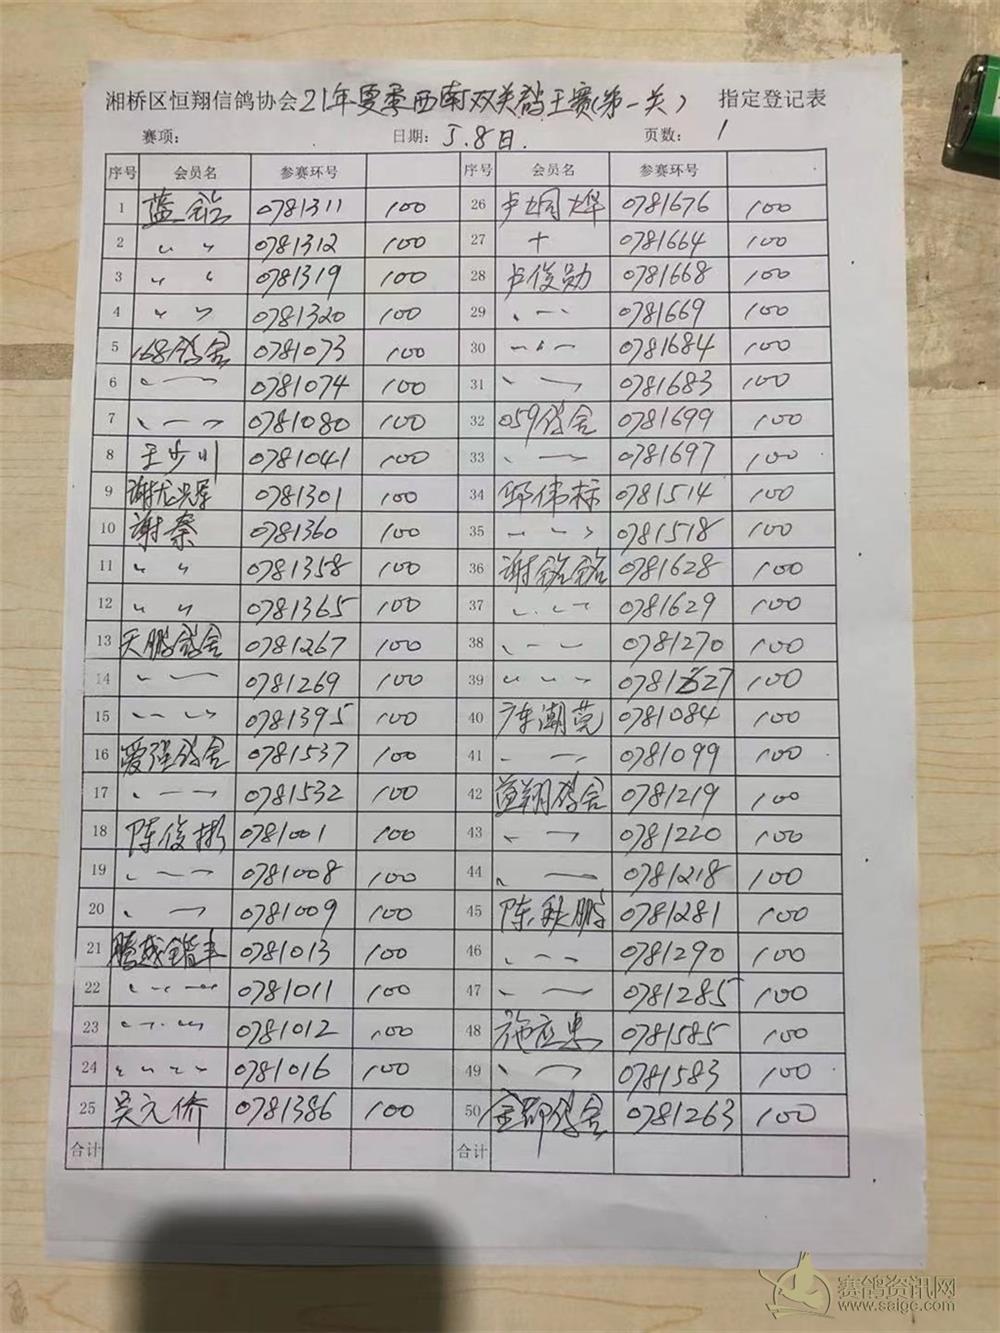 湘桥区恒翔信鸽协会21年夏季西南双关鸽王赛(第一关) 指定登记表
赛项: 日期: 5.8日. 页数: 1
序号 会员名 参赛环号 序号 会员名 参赛环号
1 蓝 0781311 100 26 卢 0781676 100
2 〃 〃 0781312 100 27 0781664 100
3 〃 〃 0781319 100 28 卢俊勋 0781668 100
4 〃 〃 0781320 100 29 0781669 100
5 168鸽舍 0781073 100 30 0781684 100
6 0781074 100 31 0781683 100
7 0781080 100 32 059鸽舍 0781699 100
8 王少川 0781041 100 33 0781697 100
9 谢龙 0781301 100 34 邱伟标 0781514 100
10 谢秦 0781360 100 35 0781518 100
11 〃 〃 0781358 100 36 谢 0781628 100
12 〃 〃 0781365 100 37 0781629 100
13 天鹏鸽舍 0781267 100 38 0781270 100
14 0781269 100 39 0781627 100
15 0781395 100 40 广东潮莞 0781084 100
16 爱强鸽舍 0781537 100 41 0781099 100
17 0781532 100 42 翔鸽舍 0781219 100
18 陈俊彬 0781001 100 43 0781220 100
19 0781008 100 44 0781218 100
20 0781009 100 45 陈秋鹏 0781281 100
21 腾越 0781013 100 46 0781290 100
22 0781011 100 47 0781285 100
23 0781012 100 48 施应忠 0781585 100
24 0781016 100 49 0781583 100
25 吴元侨 0781386 100 50 金郡鸽舍 0781263 100
合计 合计
赛鸽资讯网
www.saige.com